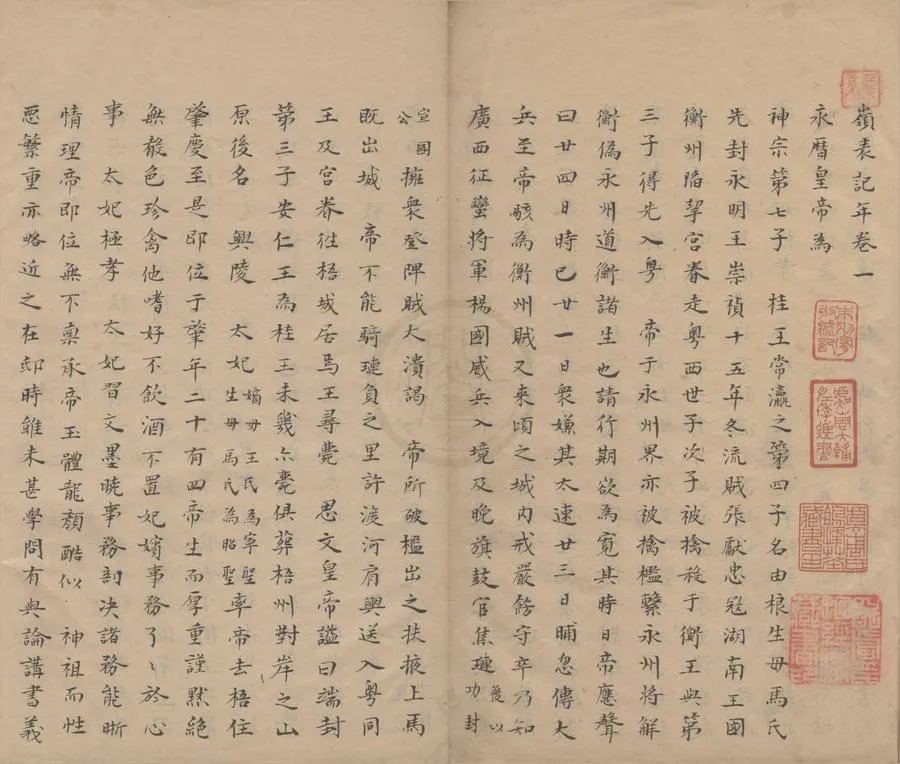 嶺表記年卷一
永曆皇帝為
神宗第七子 桂王常瀛之第四子名由榔生母馬氏
先封永明王崇禎十五年冬流賊張獻忠寇湖南王國
衡州陷挈宮眷走粵西世子次子被擒殺于衡王與第
三子得先入粵 帝于永州界亦被擒檻繫永州將解
衡偽永州道衡諸生也請行期欲為寬其時日帝應聲
曰廿四日時巳廿一日衆嫌其太速廿三日晡忽傳大
兵至帝駭為衡州賊又來頃之城內戒嚴餙守卒乃知
廣西征蠻將軍楊國威兵入境及晚旗鼓官焦璉後以功封
宣國公擁衆登陴賊大潰謁 帝所破檻出之扶掖上馬
既出城 帝不能騎璉負之里許渡河肩輿送入粵同
王及宮眷徃梧城居焉王尋薨 思文皇帝謚曰端封
第三子安仁王為桂王未幾亦薨俱葬梧州對岸之山
原後名興陵 太妃嫡母王氏為寧聖生母馬氏為昭聖率帝去梧住
肇慶至是即位于肇年二十有四帝生而厚重謹默絕
無聲色珍禽他嗜好不飲酒不置妃嬪事務了了於心
事 太妃極孝 太妃習文墨曉事務剖决諸務能晰
情理帝即位無不禀承帝玉體龍顏酷似 神祖而性
惡繁重亦略近之在邸時雖未甚學問有與論講書義